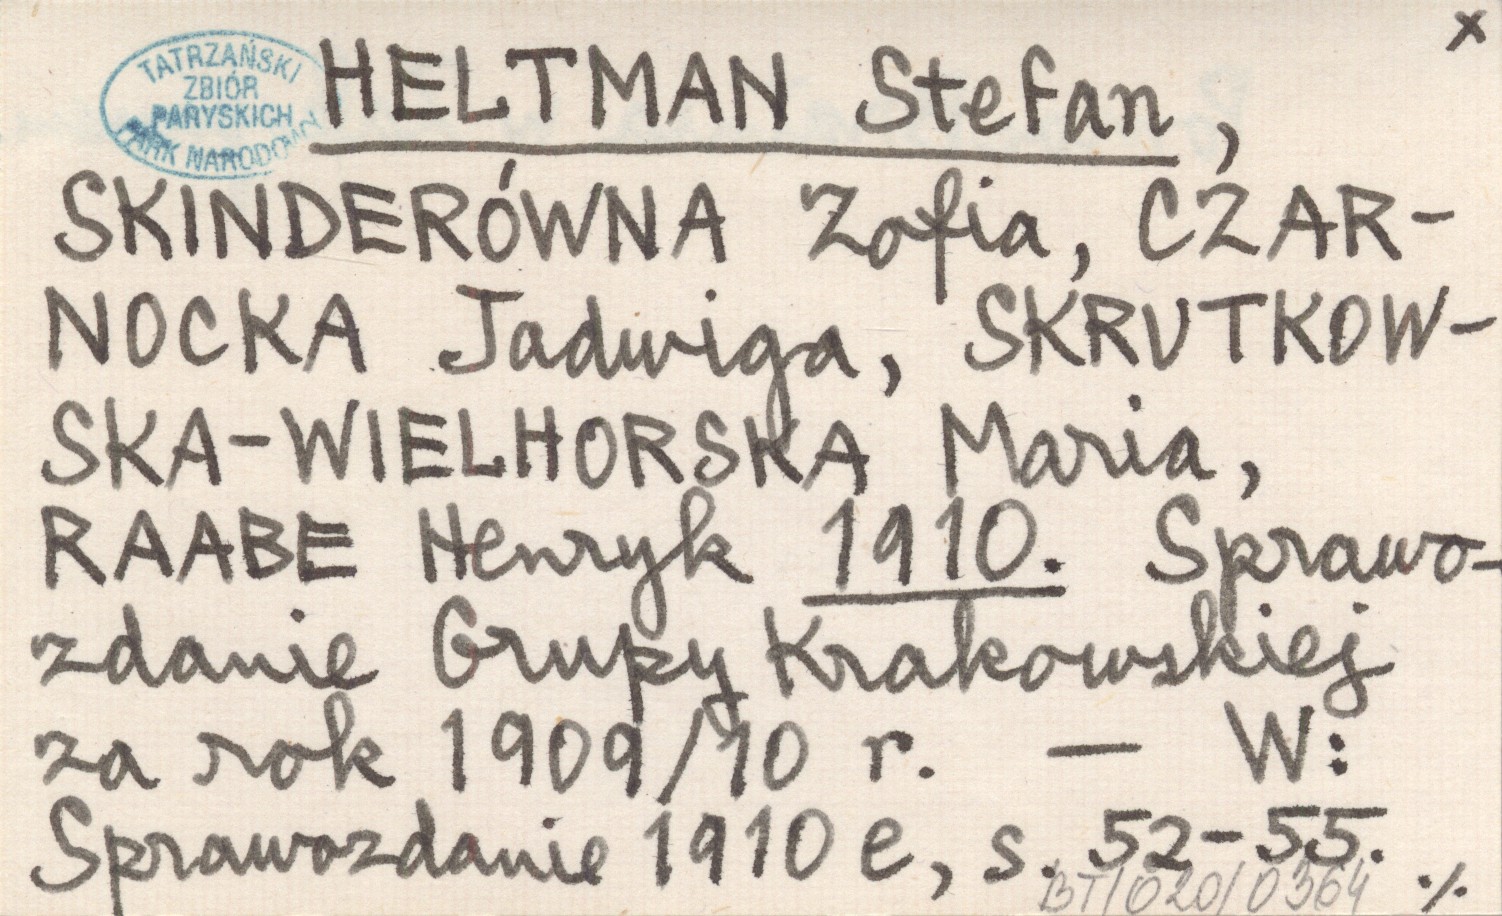 x
TATRZAŃSKI
ZBIÓR
PARYSKICH
PARK NARODOWY
HELTMAN Stefan,
SKINDERÓWNA Zofia, CZAR-
NOCKA Jadwiga, SKRUTKOW-
SKA-WIELHORSKA Maria,
RAABE Henryk 1910. Sprawo-
zdanie Grupy Krakowskiej
za rok 1909/10 r. — W:
Sprawozdanie 1910 e, s. 52-55.
BT/020/0364
./.